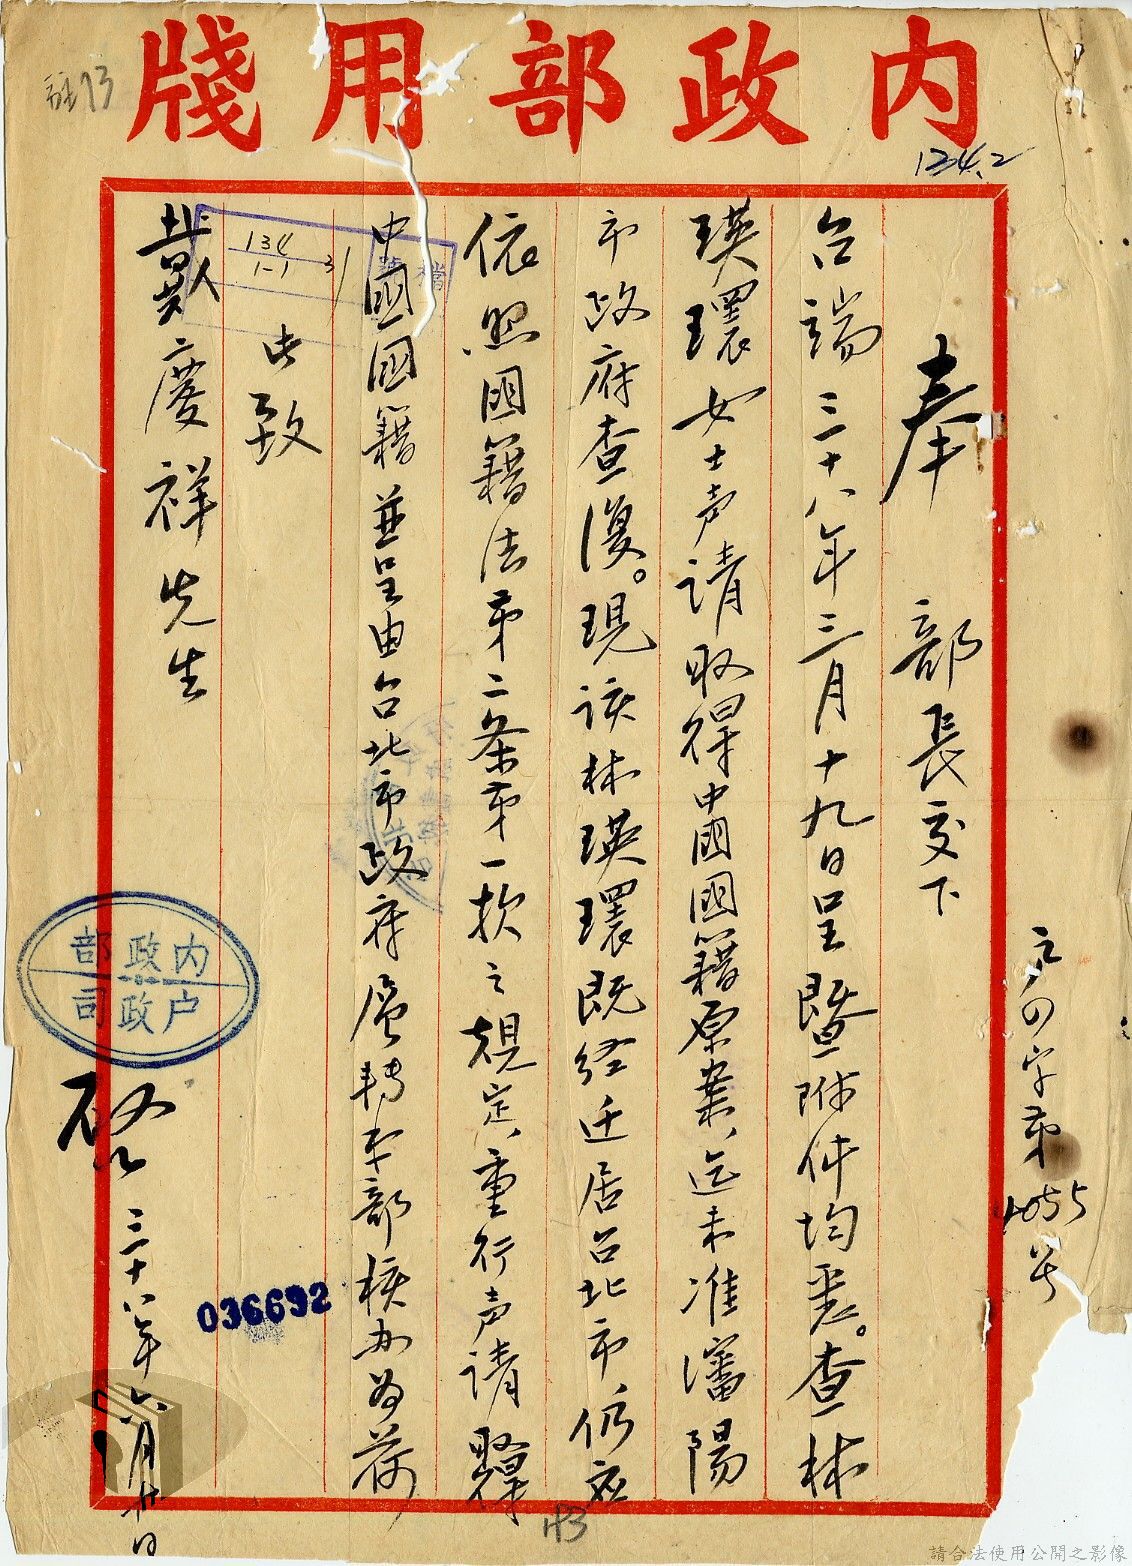 內政部用牋
註13
1234.2
戶四字第1055号
奉　部長交下
台端三十八年三月十九日呈暨附件均悉。查林
瑛環女士声請取得中國國籍原案，迄未准瀋陽
市政府查復。現該林瑛環既经迁居台北市，仍应
依照國籍法第二条第一款之規定，重行声請取得
中國國籍並呈由台北市政府層轉本部核办为荷
此致
戴慶祥先生
134
1-1
31
檔
內政部
戶政司
啟 三十八年六月廿日
036692
113
請合法使用公開之影像